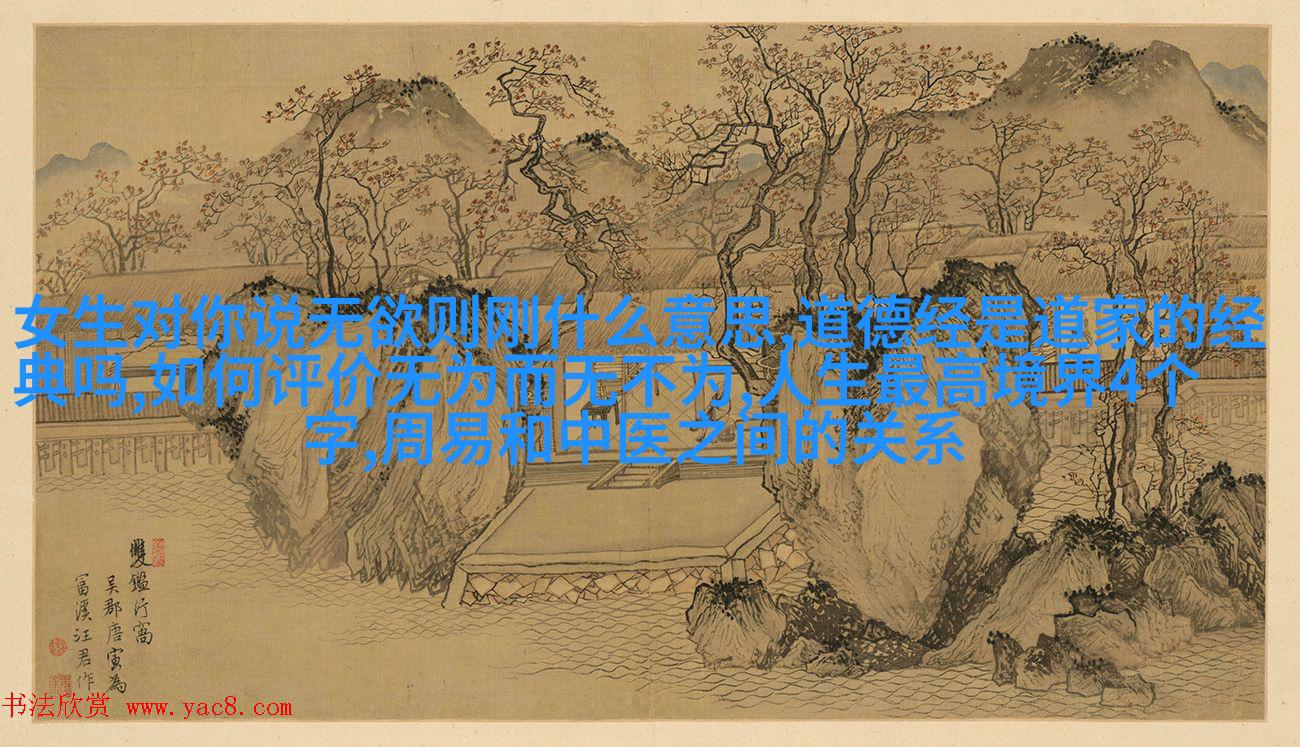 女生对你说无欲则刚什么意思,道德经是道家的经
典吗,如何评价无为而无不为,人生最高境界4个
字,周易和中医之间的关系
雙鑑行窩
吴郡唐寅為
富溪汪君作
书法欣赏 www.yac8.com